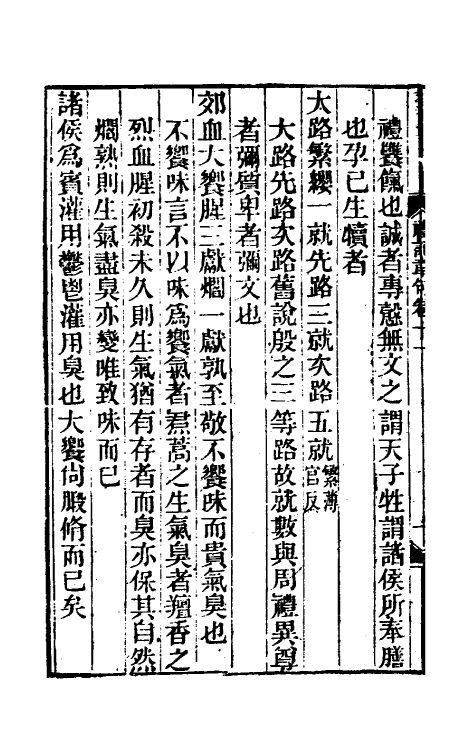 禮饔餼也誠者專慤無文之謂天子牲謂諸侯所奉膳
也孕已生犢者
大路繁纓一就先路三就次路五就繁薄官反
大路先路次路舊說殷之三等路故就數與周禮異尊
者彌質卑者彌文也
郊血大饗腥三獻爓一獻孰至敬不饗味而貴氣臭也
不饗味言不以味爲饗氣者焄蒿之生氣臭者羶香之
烈血腥初殺未久則生氣猶有存者而臭亦保其自然
爓熟則生氣盡臭亦變唯致味而已
諸侯爲賓灌用鬱鬯灌用臭也大饗尙腶脩而已矣